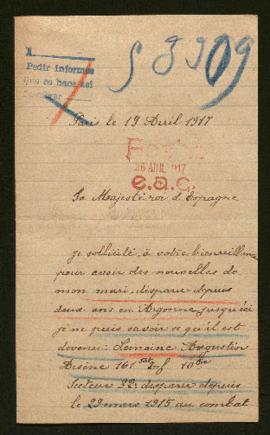 A
Pedir informes
que se hace así
59909
Paris le 19 Avril 1917
26 ABR. 1917
e.a.c.
Sa Majesté roi d'Espagne
je sollicite à votre bienveillance
pour avoir des nouvelles de
mon mari disparu depuis
deux ans en Argonne jusqu'ici
je ne puis savoir ce qu'il est
devenu: Lemaine Augustin
Arsène 161 Inf 10
Secteur 92 disparu depuis
le 29 mars 1915 au combat